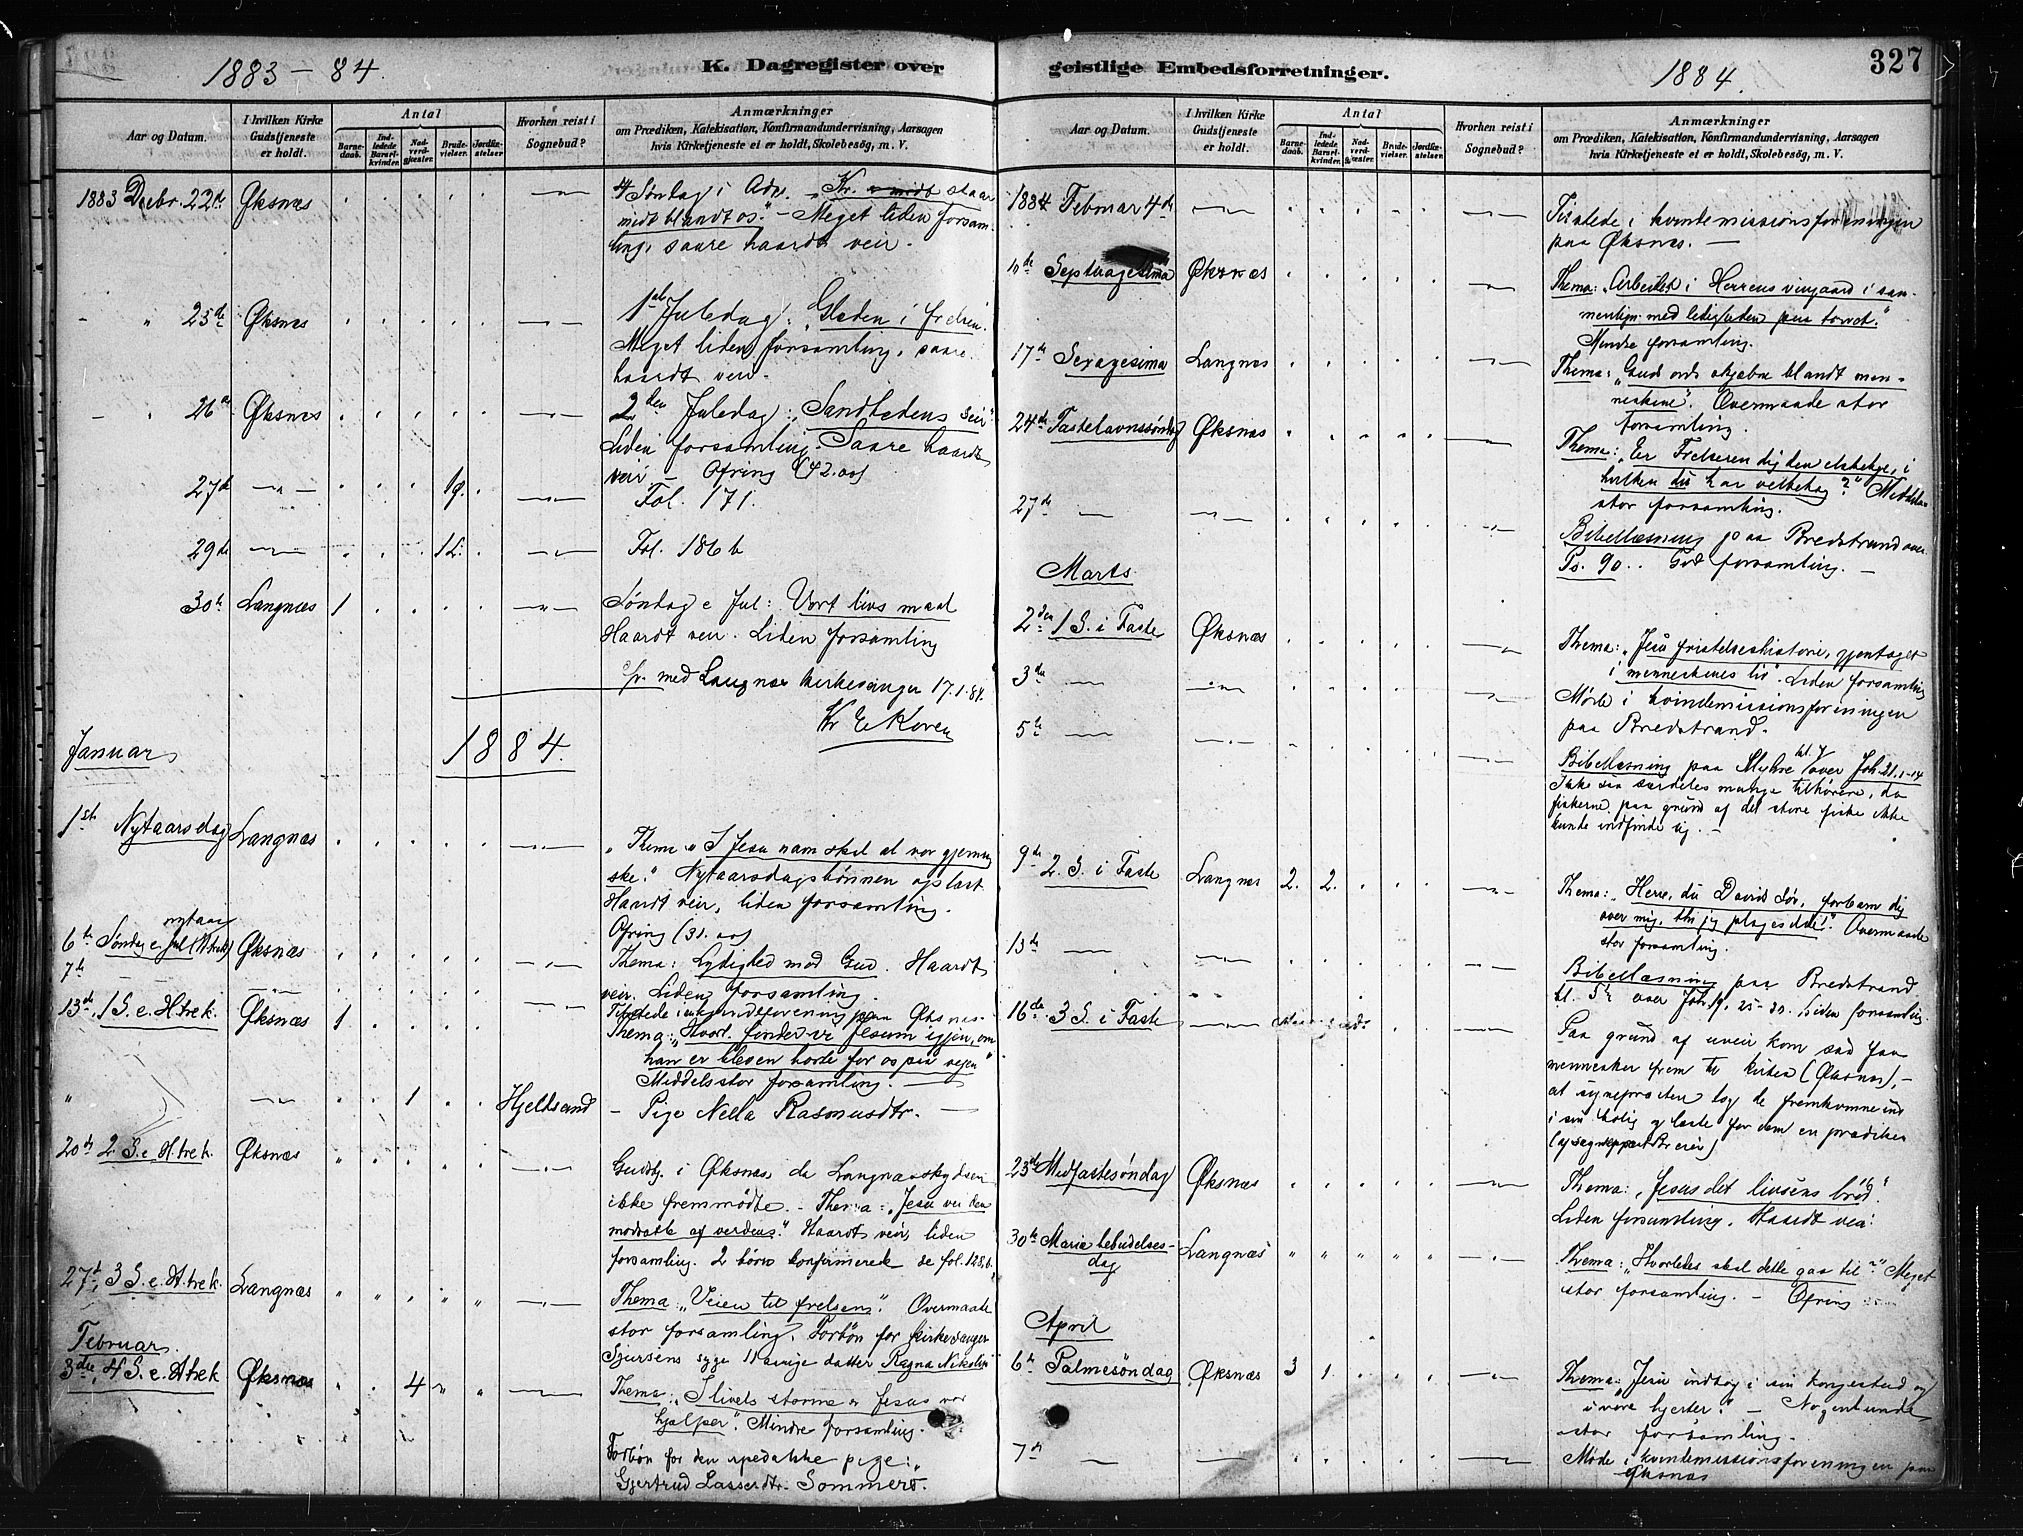 1883 - 84.
K. Dagregister over
Aar og Datum.
I hvilken Kirke
Gudstjeneste
er holdt.
Antal
Barne-
daab.
Ind-
ledede
Barsel-
kvinder.
Nad-
verd-
gjester.
Brude-
vielser.
Jordfæ-
stelser
Hvorhen reist i
Sognebud?
Anmærkninger
om Prædiken, Katekisation, Konfirmandundervisning, Aarsagen
hvis Kirketjeneste ei er holdt, Skolebesøg, m. V.
1883 Decbr. 22de Øksnæs
4 Søndag i Adv. "Kr. staar
midt blandt os." - Meget liden forsam-
ling, saare haardt veir.
25de Øksnæs
1ste Juledag: "Glæden i frelsen.
Meget liden forsamling, saare
haardt veir.
26de Øksnæs
2den Juledag: "Sandhedens seir"
Liden forsamling. Saare haardt
veir. - Ofring
27de 1 g. Fol. 171.
29de 1 L. Fol. 186 b
30te Langnæs 1
Søndag e Jul: Vort livs maal
Haardt veir. Liden forsamling
med Langnæs kirkesanger 17.1.84.
Januar
1884.
1ste Nytaarsdag Langnæs
"Thema: "I Jesu navn skal al vor gjerning
ske." Nytaarsdagsbønnen oplæst.
Haardt veir, liden forsamling.
Ofring
nytaar
6te Søndag e. Jul (H.trek.) Øksnæs
Thema: Lydighed mod Gud. Haardt
veir. Liden forsamling.
7de
13de, 1 S. e. H.trek. Øksnæs 1
Thema: "Hvorl. finder vi Jesum igjen, om
han er bleven borte for os paa vejen"
Middelsstor forsamling. -
1 Hjeldsand - Pige Nella Rasmusdtr. -
20de 2 S. e. H.trek. Øksnæs
Gudstj. i Øksnæs, da Langnæsskydsen
ikke fremmødte. - Thema: "Jesu vei den
modsatte af verdens." Haardt veir, liden
forsamling. 2 børn konfirmerede se fol. 128, b.
27de, 3 S. e. H.trek. Langnæs
Thema: "Veien til frelsen." Overmaate
stor forsamling. Forbøn for kirkesanger
Sjursens syge 11 aarige datter Ragna Nikolin
Februar.
3die, 4 S. e. H.trek Øksnæs 4
Thema: "I livets storme er Jesus vor
hjælper". Mindre forsamling.
Forbøn for den spedalske pige:
Gjertrud Lasserdtr. Sommerø.
geistlige Embedsforretninger.
1884.
327
Aar og Datum.
I hvilken Kirke
Gudstjeneste
er holdt.
Antal
Barne-
daab.
Ind-
ledede
Barsel-
kvinder.
Nad-
verd-
gjester.
Brude-
vielser.
Jordfæ-
stelser.
Hvorhen reist i
Sognebud?
Anmærkninger
om Prædiken, Katekisation, Konfirmandundervisning, Aarsagen
hvis Kirketjeneste ei er holdt, Skolebesøg, m. V.
1884 Februar 4de
Tilstede i kvindemissionsforeningen
paa Øksnæs. -
10de Septuagesima Øksnæs
Thema: "Arbeidet i Herrens vingaard i sam-
menlign. med lediggaaden paa torvet."
Mindre forsamling.
17de Sexagesima Langnæs
Thema: "Guds ords skjæbne blandt men-
neskene". Overmaade stor
forsamling.
24de Fastelavnssøndag Øksnæs
Thema: "Er Frelseren dig den elskelige, i
hvilken du har velbehag?" Middels-
stor forsamling.
27de
Bibellæsning paa Bredstrand over
Ps. 90. God forsamling. -
Marts.
2den 1 S. i Faste Øksnæs
Thema: "Jesu fristelseshistorie, gjentaget
i menneskenes liv". Liden forsamling
3die
Møde i kvindemissionsforeningen
paa Bredstrand.
5te
Bibellæsning paa Myhre over Joh. 21. 1-14
Ikke saa særdeles mange tilhørere, da
fiskerne paa grund af det store fiske ikke
kunde indfinde sig. -
9de 2. S. i Faste Langnæs 2. 2.
Thema: "Herre, du Davids Søn, forbarm dig
over mig, thi jeg plages ilde." Overmaade
stor forsamling.
13de
Bibellæsning paa Bredstrand
kl. 5½ over Joh. 19, 25-30. Liden forsamling.
16de 3 S. i Faste
Paa grund af uveir kom saa faa
mennesker frem til kirken (Øksnæs), -
at sognepresten tog de fremkomne ind
i sin bolig og læste for dem en prædiken
23de Midfastesøndag Øksnæs
Thema: "Jesus det livsens brød."
Liden forsamling. Haardt veir.
30te Mariæ bebudelses-
dag
Langnæs
Thema: "Hvorledes skal dette gaa til?" Meget
stor forsamling. - Ofring
April
6te Palmesøndag Øksnæs 3 1.
Thema: "Jesu indtog i sin kongestad og
i vore hjerter." - Nogenlunde
stor forsamling.
7de
Møde i kvindemissionsforeningen paa
Øksnæs